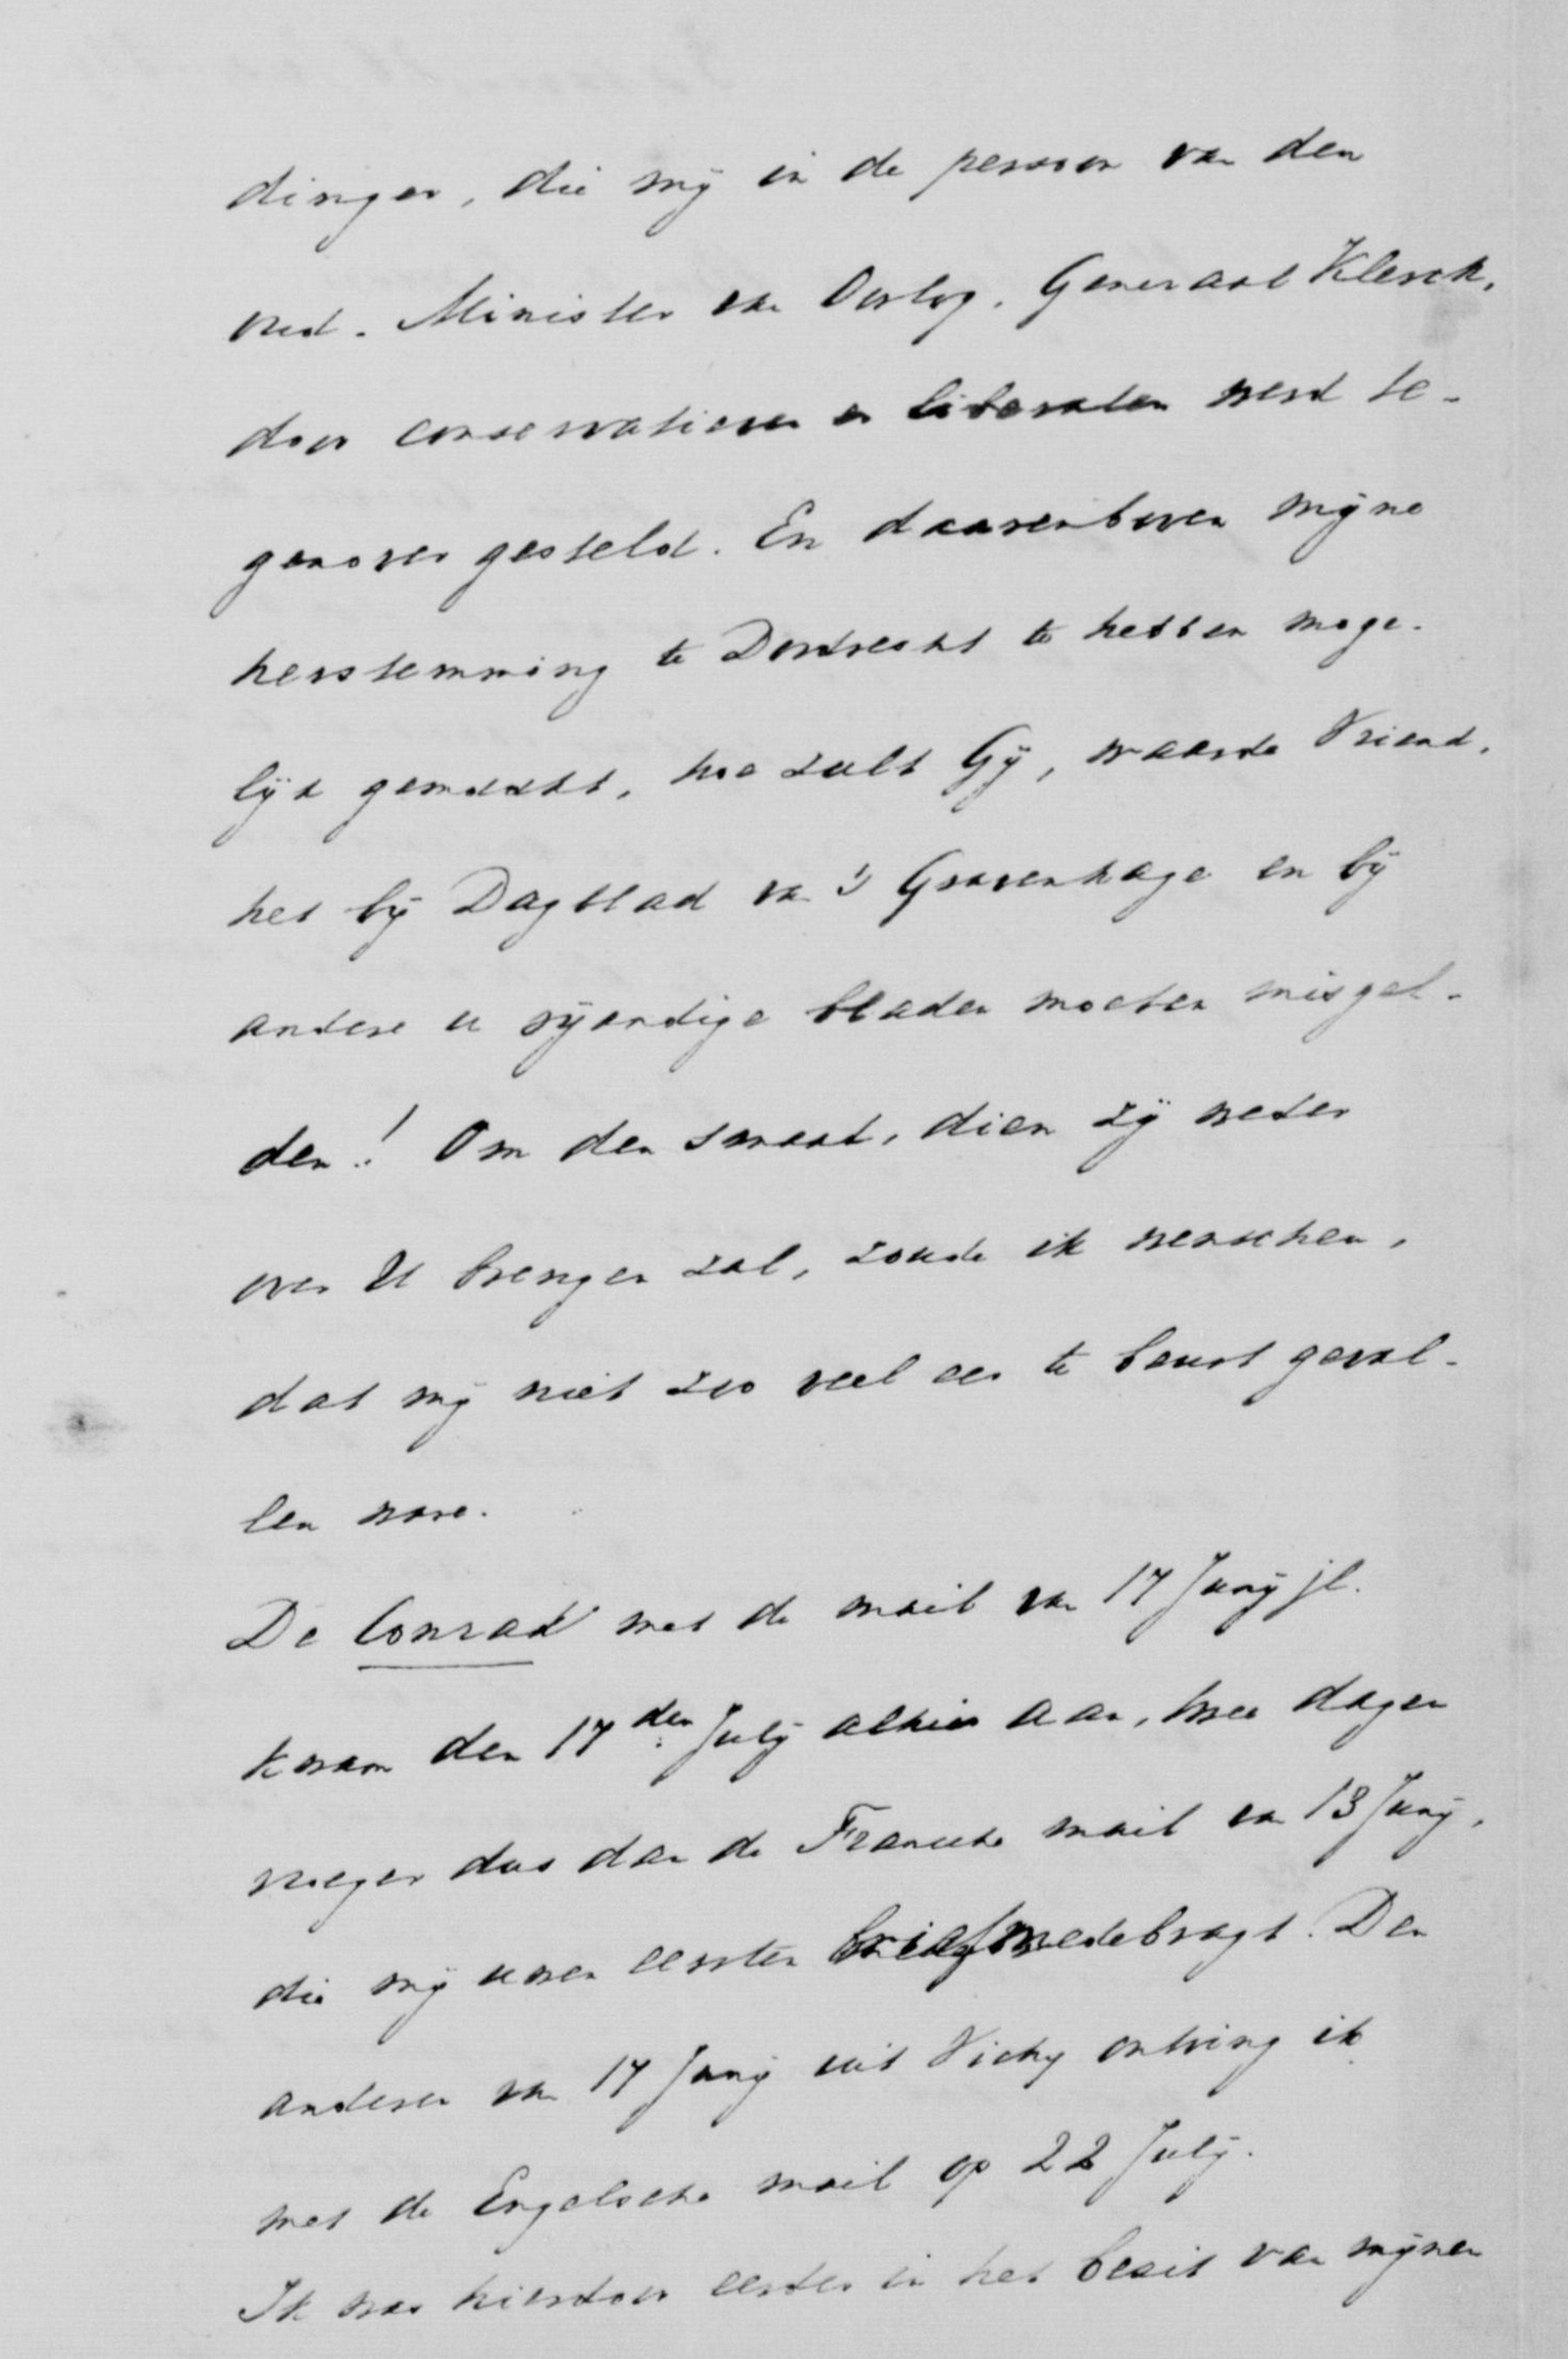 dinger, die mij in de persoon van den
oud. Minister van Oorlog, Generaal Klerck,
door conservatieven en liberalen werd te-
genover gesteld. En daarenboven mijne
herstemming te Dordrecht te hebben moge-
lijk gemaakt, hoe zult Gij, waarde Vriend,
het bij Dagblad van 's Gravenhage en bij
andere u vijandige bladen moeten misgel-
den! Om den smaad, dien zij weder
over U brengen zal, zoude ik wenschen,
dat mij niet zoo veel eer te beurt geval-
len ware.
De Conrad met de mail van 17 Junij jl.
kwam den 17den July alhier aan, twee dagen
vroeger dus dan de Fransche mail van 13 Junij,
die mij uwen eersten brief medebragt. Den
anderen van 17 Junij uit Vichy ontving ik
met de Engelsche mail op 22 July.
Ik was hierdoor eerder in het bezit van mijnen